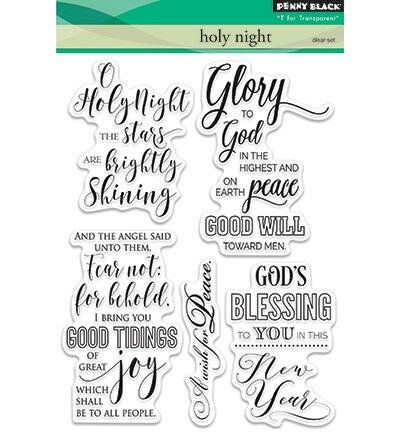 PENNY BLACK
"T for Transparent"
holy night
clear set
O
Holy Night
THE stars
ARE brightly
Shining
Glory
TO
God
IN THE
HIGHEST AND
ON
EARTH peace
GOOD WILL
TOWARD MEN.
AND THE ANGEL SAID
UNTO THEM,
Fear not:
for behold,
I BRING YOU
GOOD TIDINGS
OF
GREAT joy
WHICH
SHALL
BE TO ALL PEOPLE.
A wish for Peace.
GOD'S
BLESSING
TO YOU IN THIS
New
Year